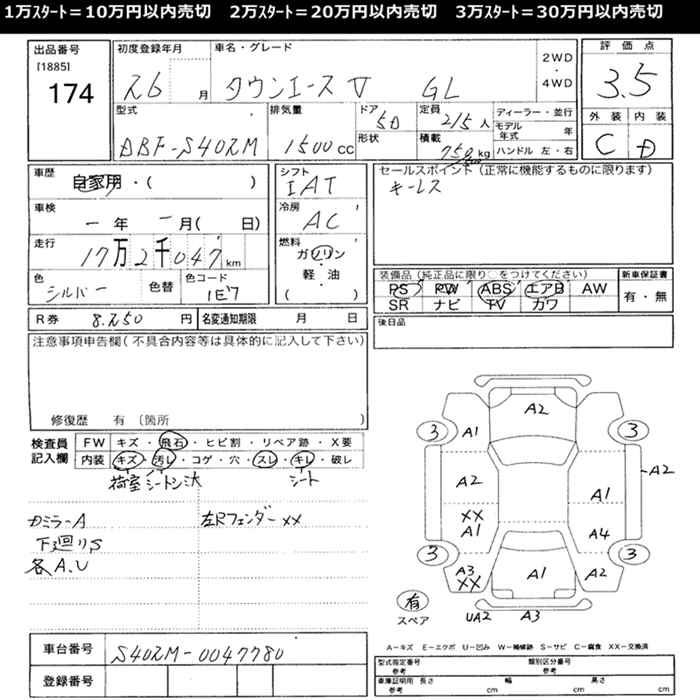 1万ｽﾀｰﾄ＝10万円以内売切　2万ｽﾀｰﾄ＝20万円以内売切　3万ｽﾀｰﾄ＝30万円以内売切
出品番号
[1885]
174
初度登録年月
26 月
車名・グレード
タウンエースV GL
2WD
・
4WD
評価点
3.5
型式
DBF-S402M
排気量
1500cc
ドア
5D
形状
定員
2/5人
積載
750kg
ディーラー・並行
モデル年式 年
ハンドル 左・右
外装 内装
C D
車歴
自家用・( )
車検
一年一月( 日)
走行
17万2千047km
色
シルバー
色替
色コード
1E7
シフト
IAT
冷房
AC
燃料
ガソリン
・
軽・油
( )
セールスポイント(正常に機能するものに限ります)
キーレス
装備品(純正品に限り○をつけてください)
PS PW ABS エアB AW
SR ナビ TV カワ
新車保証書
有・無
R券 8.250円
名変通知期限 月 日
後日品
注意事項申告欄(不具合内容等は具体的に記入して下さい)
修復歴 有 (箇所
検査員
記入欄
FW キズ・飛石・ヒビ割・リペア跡・X要
内装 キズ・汚レ・コゲ・穴・スレ・キレ・破レ
荷室 シートシミ大 シート
カミラーA
左Rフェンダーxx
下廻りS
各A.U
A2
3 A1 3
A2 A2
XX
A1
A1
A4
3 3
A3
XX
A1
A2
有
スペア
UA2 A3
A－キズ E－エクボ U－凹み W－補修跡 S－サビ C－腐食 XX－交換済
車台番号
S402M-0047780
登録番号
型式指定番号
参考
類別区分番号
参考
車庫証明用 長さ 幅 高さ
参考 cm cm cm